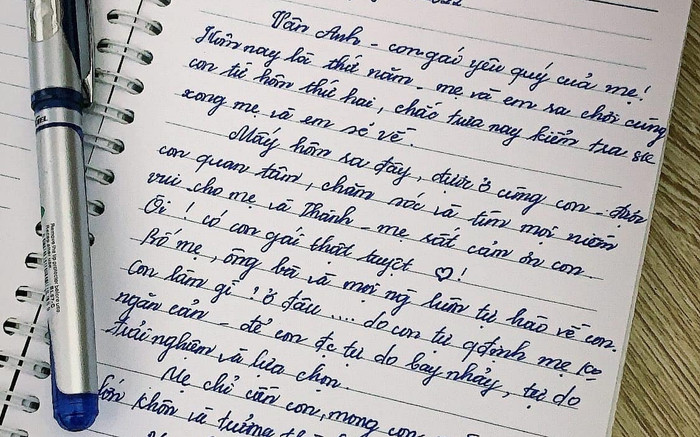 Vân Anh - con gái yêu quý của mẹ!
Hôm nay là thứ năm. mẹ và em ra chơi cùng
con từ hôm thứ hai, chắc trưa nay kiểm tra sk
xong mẹ và em sẽ về.
Mấy hôm ra đây, được ở cùng con - được
con quan tâm, chăm sóc và tìm mọi niềm
vui cho mẹ và Thành - mẹ rất cảm ơn con.
Ôi! có con gái thật tuyệt ♡!
Bố mẹ, ông bà và mọi ng luôn tự hào về con.
Con làm gì? ở đâu .... do con tự qđịnh mẹ ko
ngăn cản - để con đc tự do bay nhảy, tự do
trải nghiệm và lựa chọn.
Mẹ chỉ cần con, mong con
lớn khôn và trưởng